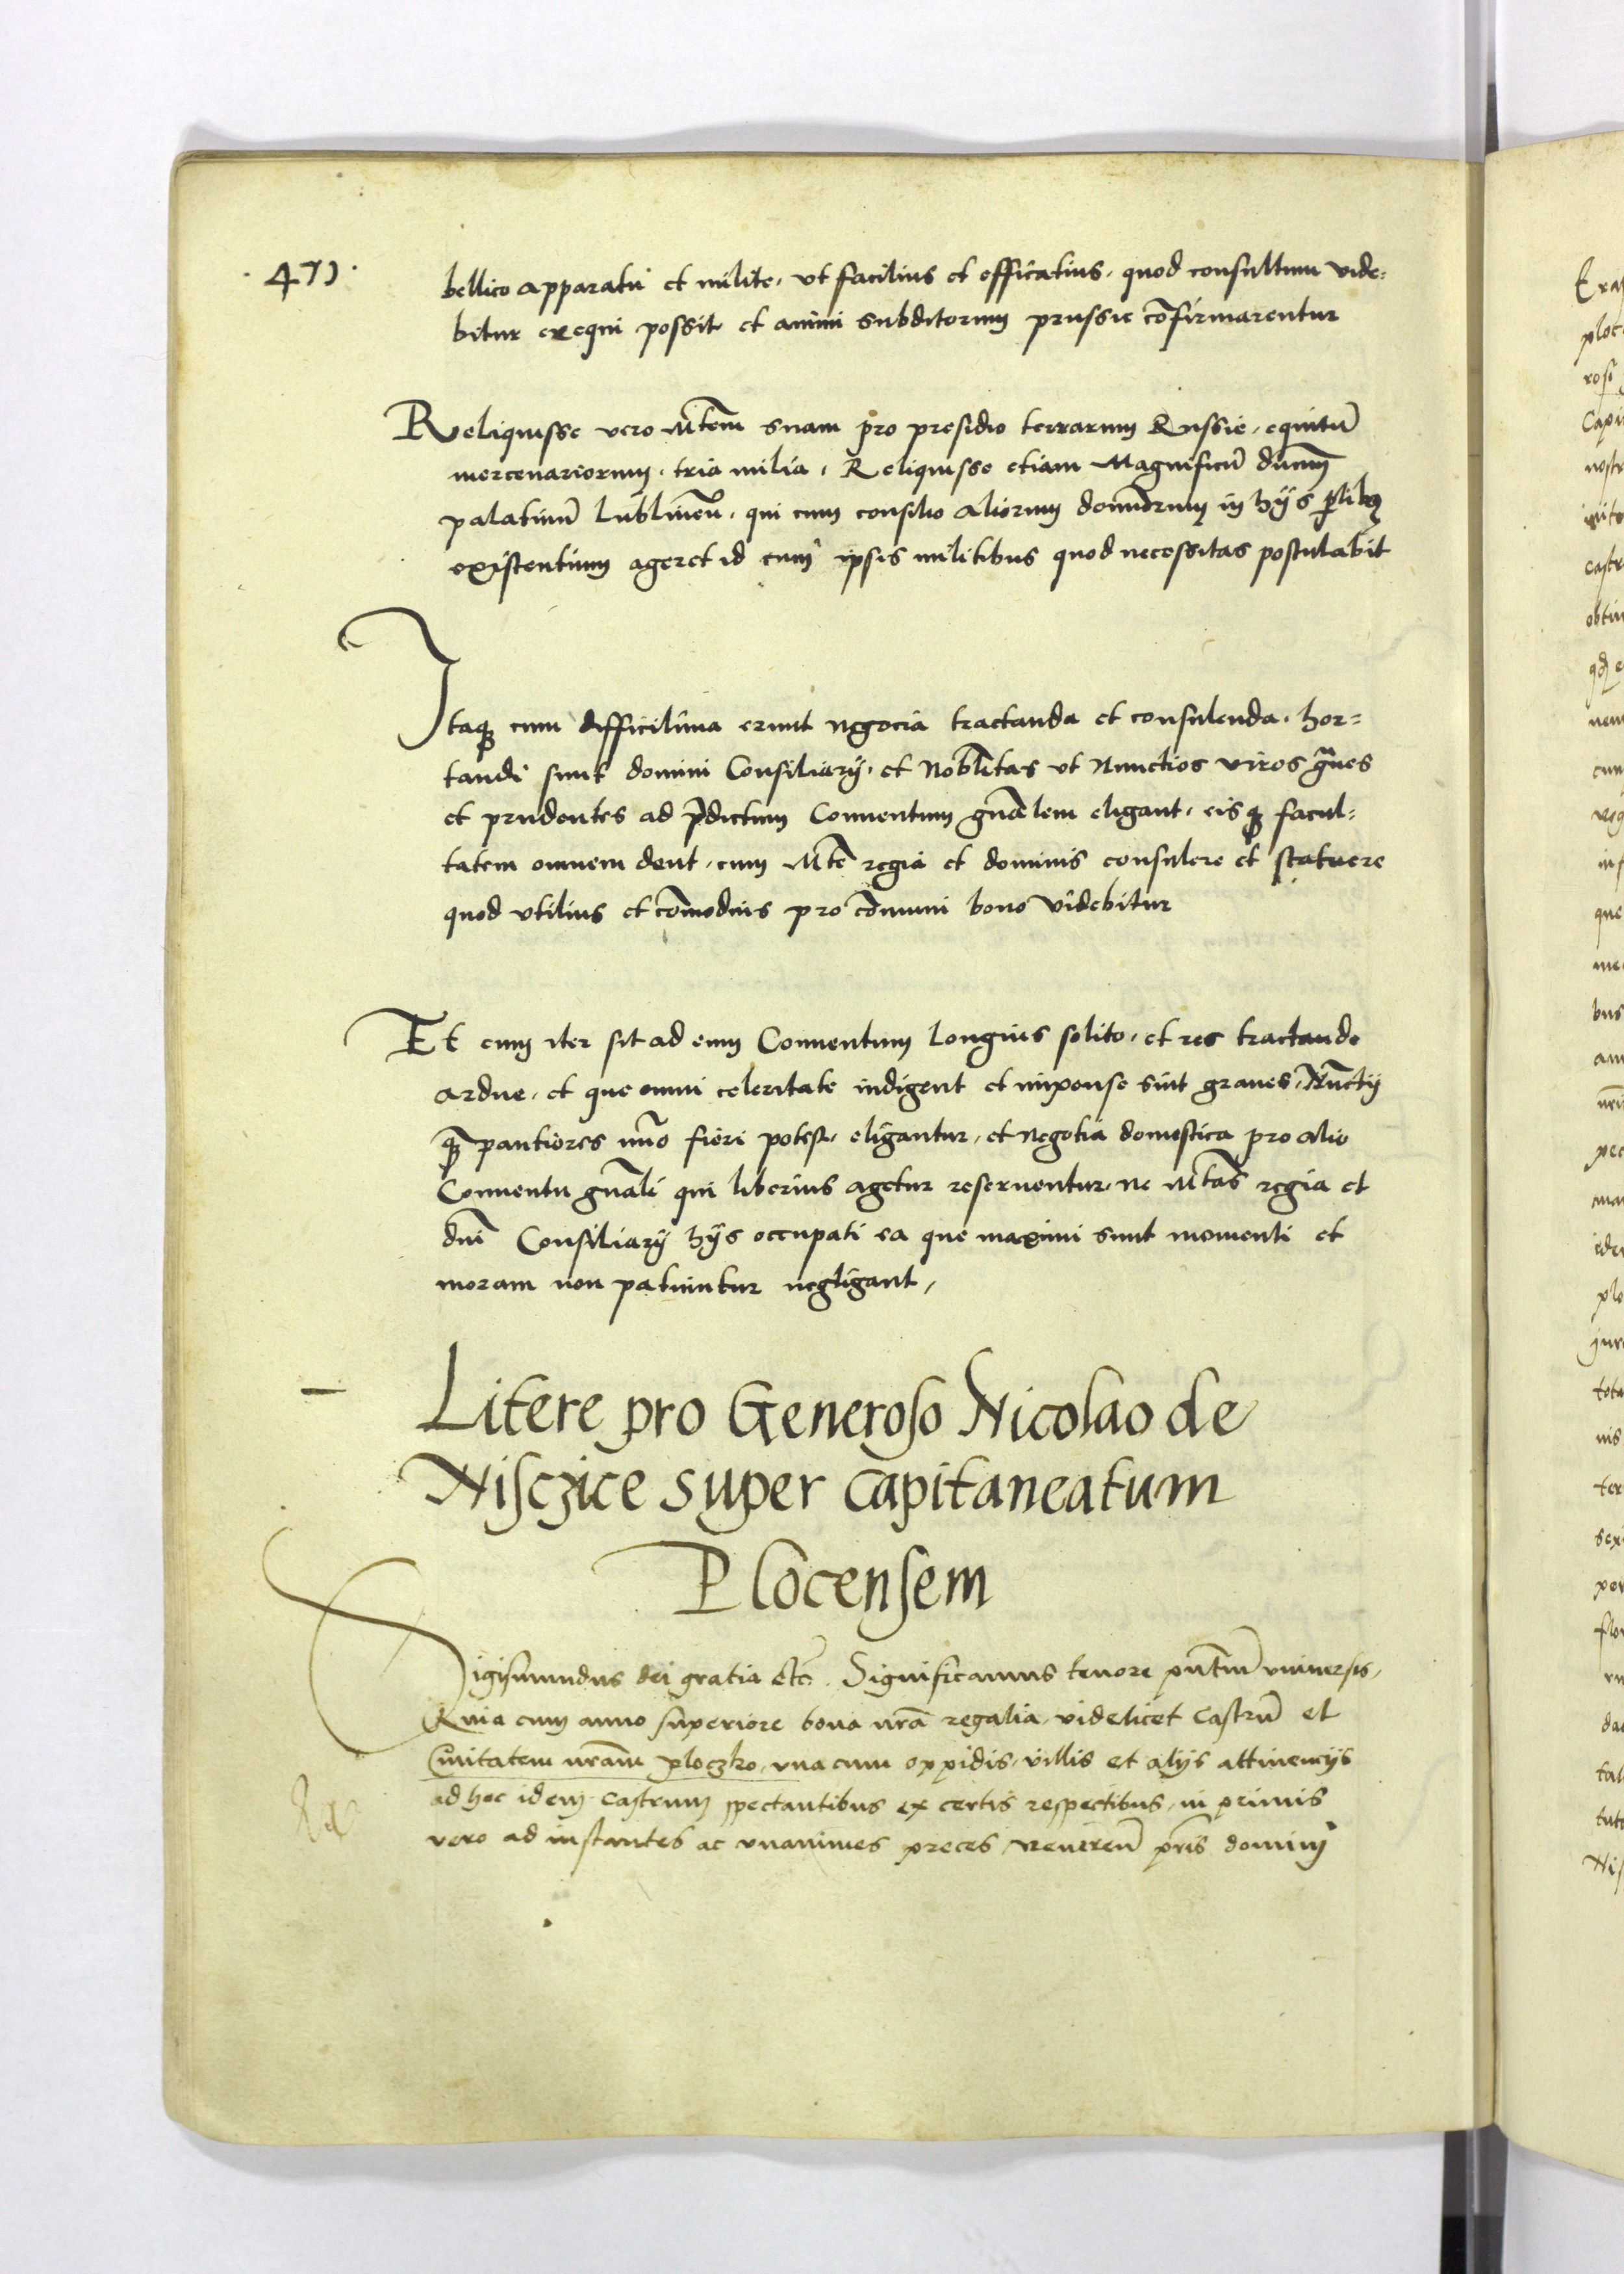 471.
bellico apparatu et milite, vt facilius et efficatius, quod consultum vide:
bitur exequi possit et animi subditorum prussie cōfirmarentur
Reliquisse vero Mtēm suam pro presidio terrarum Russie, equitū
mercenariorum, tria milia, Reliquisse etiam Magnificū dūcum
palatinū Lublineñ, qui cum consilio aliorum dominōrum in hijs
existentium ageret id cum ipsis militibus quod necessitas postulabit
Itaqꝫ cum difficilima erunt negocia tractanda et consulenda, hor=
tandi sunt domini Consiliarij, et Nobilitas vt Nunctios viros gues
et prudentes ad p̄dictum Conuentum gnālem eligant, eisqꝫ facul:
tatem omnem dent, cum Mtē regia et dominis consulere et statuere
quod vtilius et cōmodius pro cōmuni bono videbitur
Et cum iter sit ad eum Conuentum longius solito, et res tractande
ardue, et que omni celeritate indigent et impense sint graues, Nūctij
qꝫ pautiores imō fieri potest, eligantur, et negotia domestica pro alio
Conuentu gnāli qui liberius agetur reseruentur, ne Mtās regia et
dnī Consiliarij hijs occupati ea que maximi sunt momenti et
moram non patiuntur negligant,
Litere pro Generoso Nicolao de
Nisczice super capitaneatum
Plocensem
Sigismundus dei gratia Etc̄. Significamus tenore pn̄tiū vniuersis,
Quia cum anno superiore bona nrā regalia, videlicet castrū et
Ciuitatem nrām ploczko, vna cum oppidis, villis et alijs attinencijs
ad hoc idem castrum spectantibus ex certis respectibus, in primis
vero ad instantes ac vnanimes preces Reuereñ pr̄is domini